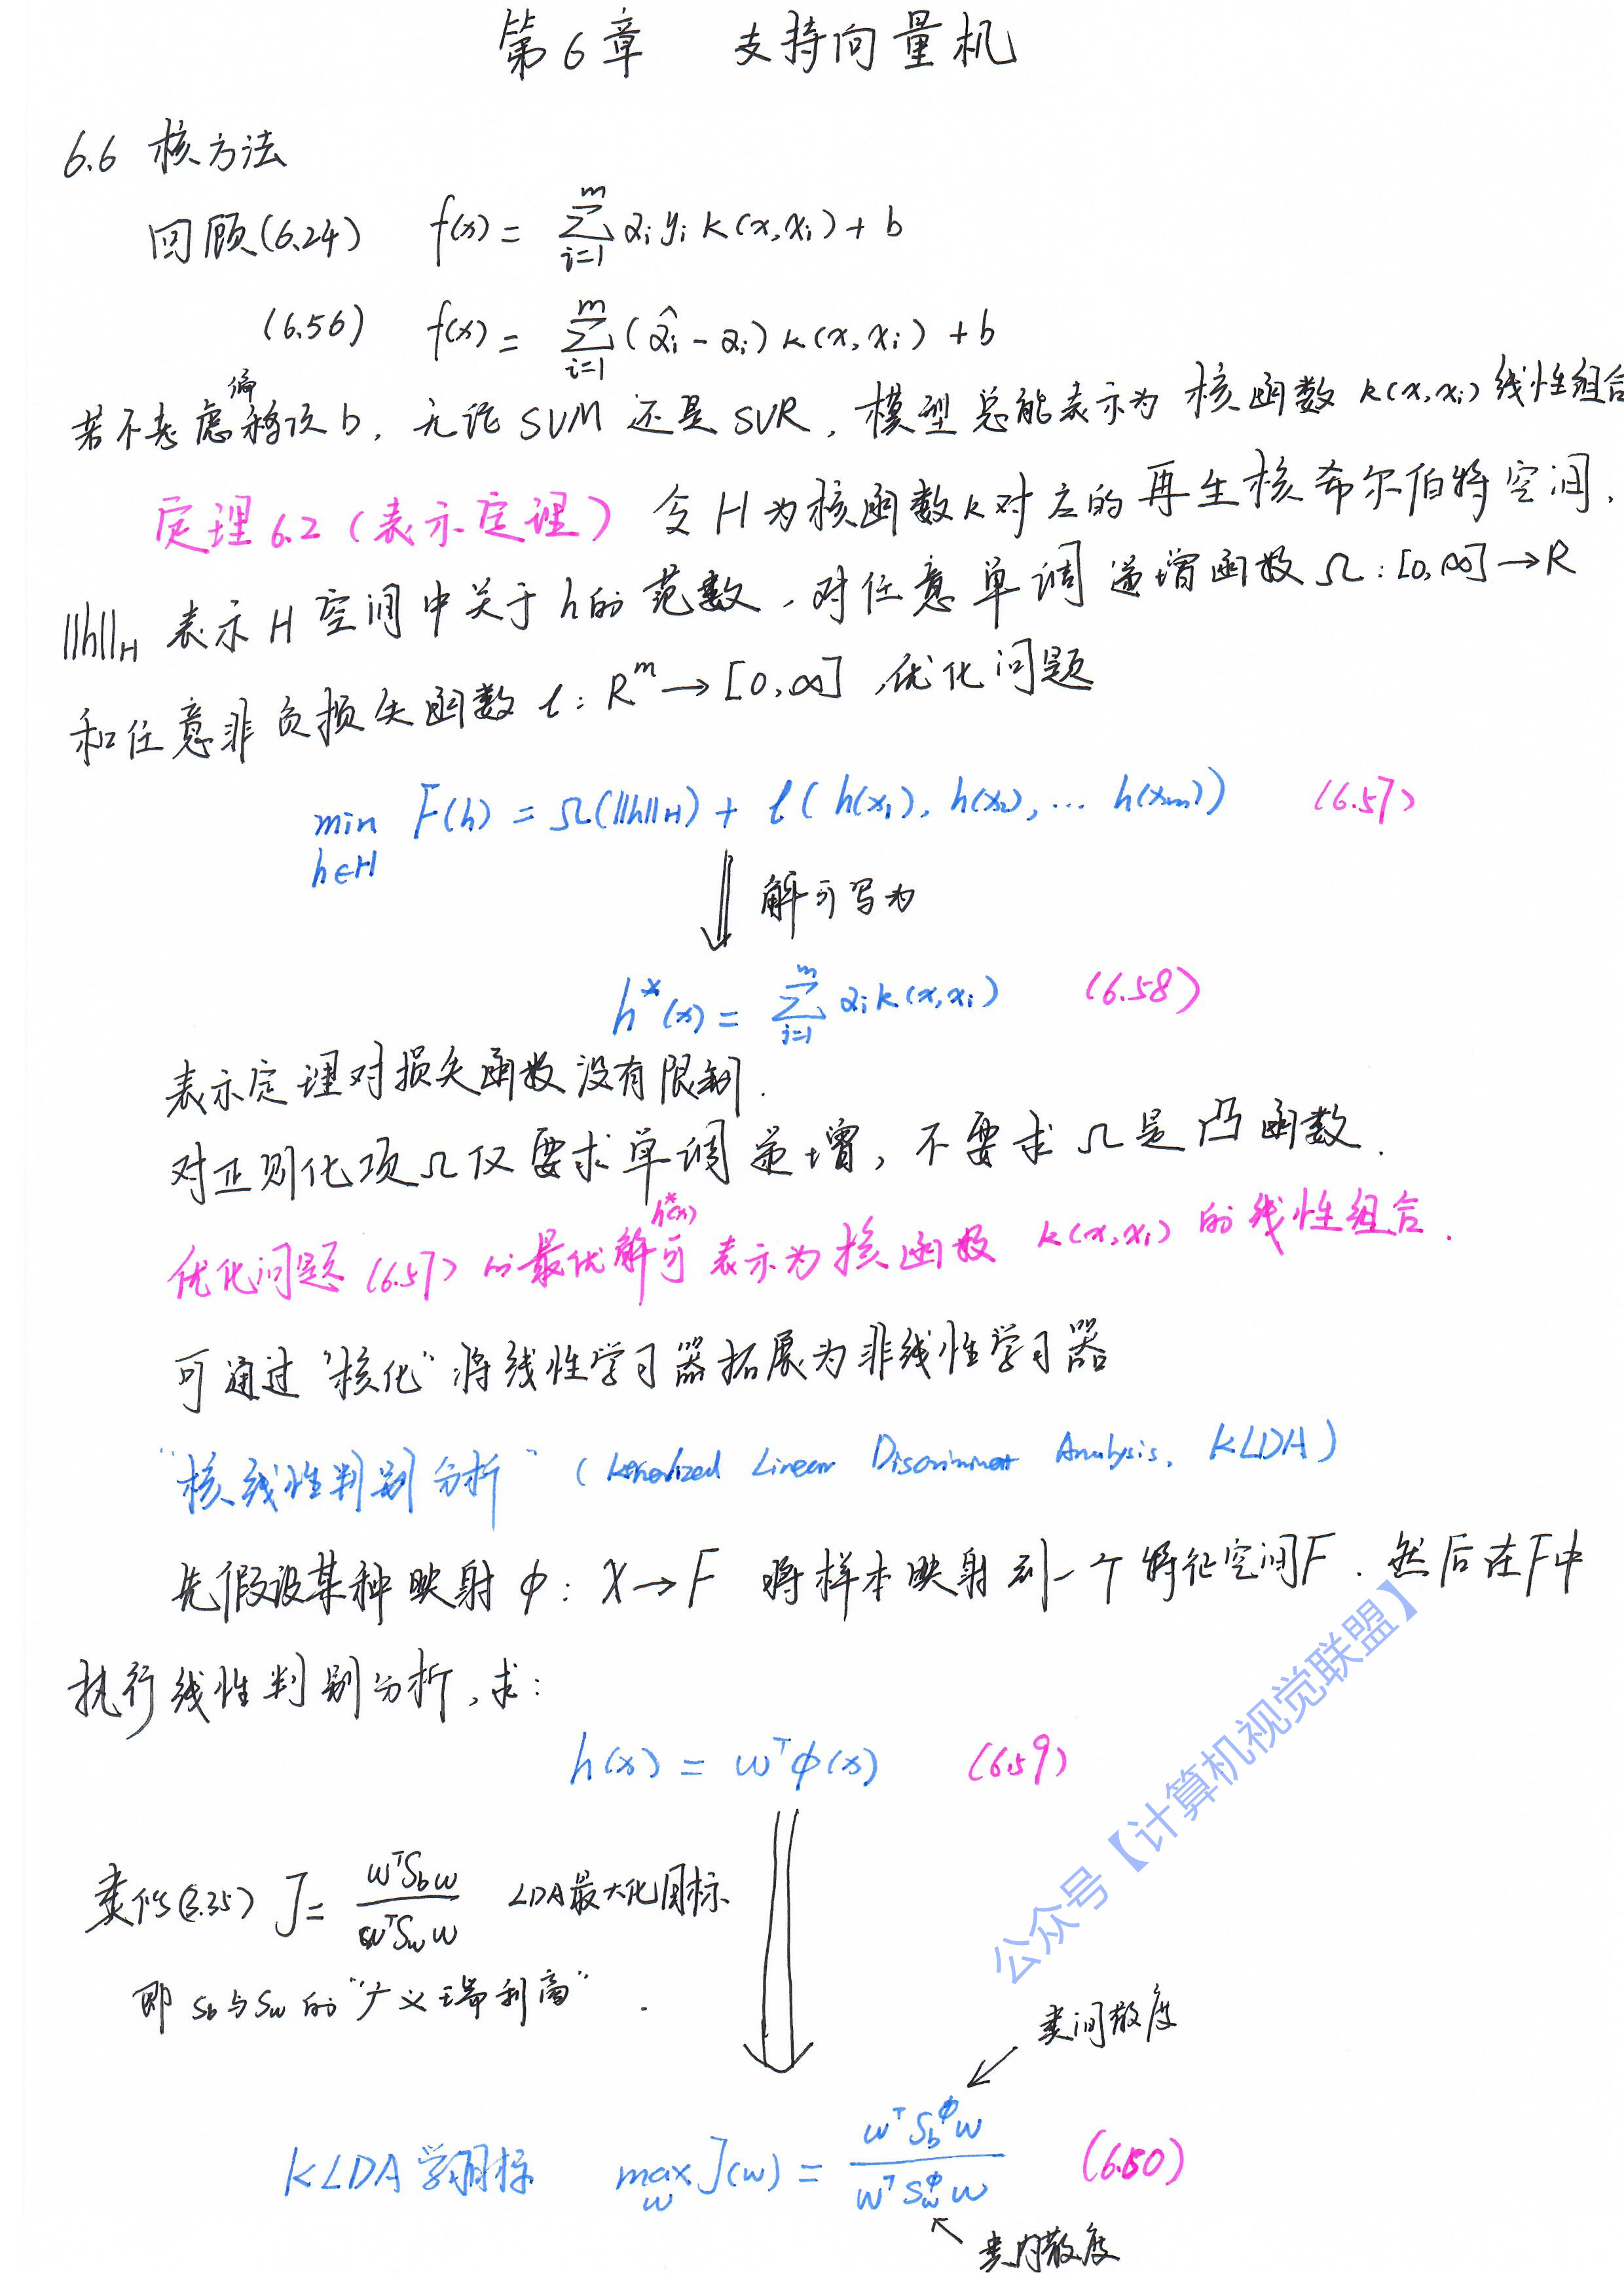 第6章 支持向量机
6.6 核方法
回顾(6.24) f(x) = ∑_{i=1}^{m} α_i y_i k(x, x_i) + b
(6.56) f(x) = ∑_{i=1}^{m} (α̂_i - α_i) k(x, x_i) + b
若不考虑偏移项b, 无论SVM还是SVR, 模型总能表示为核函数k(x, x_i)线性组合
定理6.2(表示定理) 令H为核函数k对应的再生核希尔伯特空间,
||h||_H 表示H空间中关于h的范数, 对任意单调递增函数 Ω: [0, ∞] → R
和任意非负损失函数 ℓ: R^m → [0, ∞], 优化问题
min_{h∈H} F(h) = Ω(||h||_H) + ℓ(h(x_1), h(x_2), … h(x_m)) (6.57)
解可写为
h*(x) = ∑_{i=1}^{m} α_i k(x, x_i) (6.58)
表示定理对损失函数没有限制.
对正则化项Ω仅要求单调递增, 不要求Ω是凸函数.
优化问题(6.57)的最优解h*(x)可表示为核函数 k(x, x_i) 的线性组合.
可通过"核化"将线性学习器拓展为非线性学习器
"核线性判别分析" (Kernelized Linear Discriminant Analysis, KLDA)
先假设某种映射 φ: X → F 将样本映射到一个特征空间F. 然后在F中
执行线性判别分析, 求:
h(x) = w^T φ(x) (6.59)
类似(3.35) J = \frac{w^T S_b w}{w^T S_w w} LDA最大化目标
即 S_b与S_w的"广义瑞利商".
类间散度
KLDA学习目标 max_w J(w) = \frac{w^T S_b^φ w}{w^T S_w^φ w} (6.60)
类内散度
公众号【计算机视觉联盟】